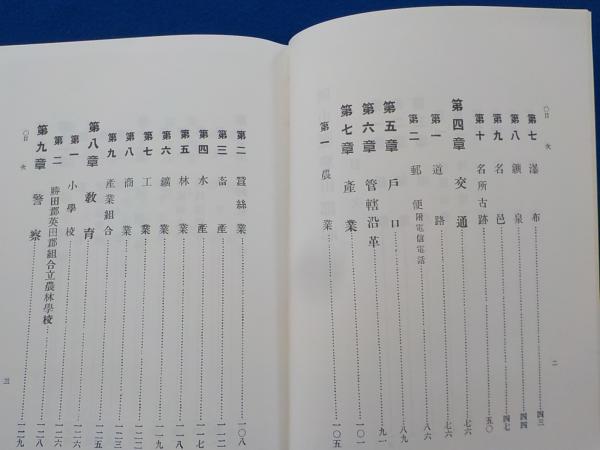 〇目次
第七 瀑布 四三
第八 鑛泉 四四
第九 名邑 四七
第十 名所古跡 五〇
第四章 交通 七六
第一 道路 七六
第二 郵便附電信電話 八六
第五章 戶口 八九
第六章 管轄沿革 九一
第七章 產業 一〇一
第一 農業 一〇五
二
第二 蠶絲業 一〇八
第三 畜產 一一二
第四 水產 一一七
第五 林業 一一八
第六 鑛業 一一九
第七 工業 一二一
第八 商業 一二二
第九 產業組合 一二三
第八章 敎育 一二五
第一 小學校 一二六
第二 勝田郡英田郡組合立農林學校 一二六
第九章 警察 一二八
一二九
〇目次
三